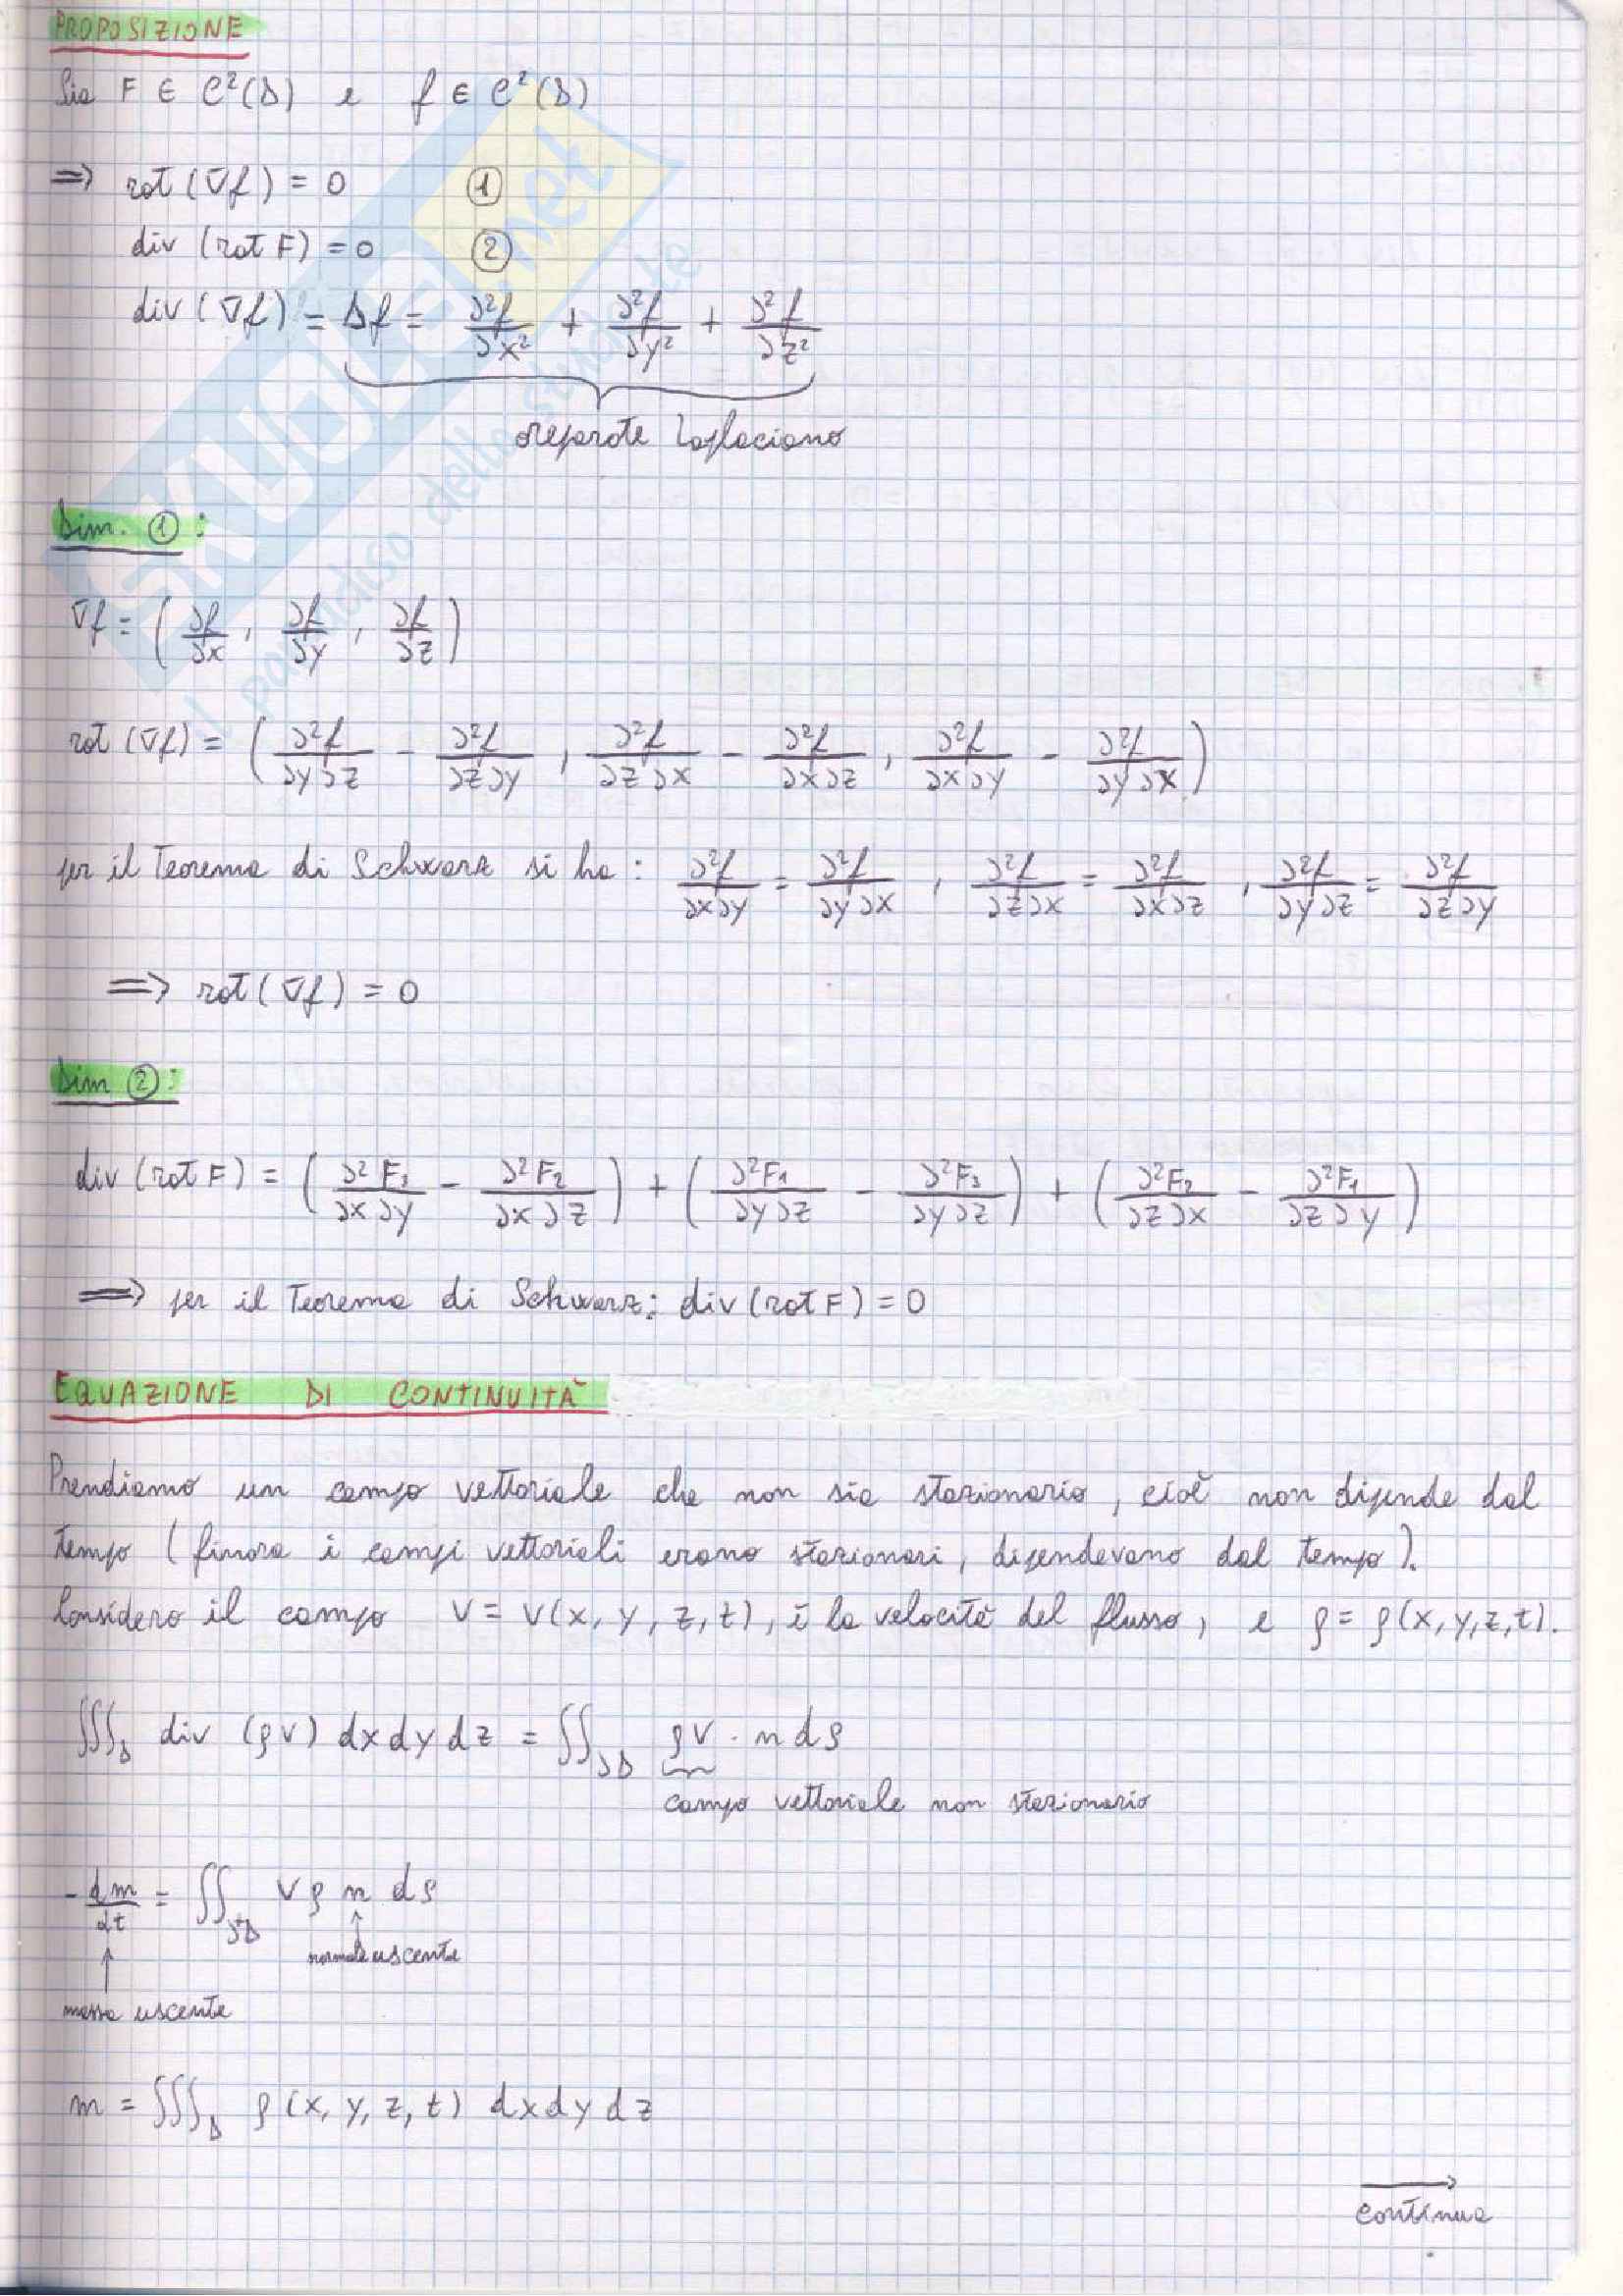 PROPOSIZIONE
Sia F ∈ C²(D) e f ∈ C²(D)
⇒ rot (∇f) = 0 ①
div (rot F) = 0 ②
div (∇f) = Δf = ∂²f/∂x² + ∂²f/∂y² + ∂²f/∂z²
operatore Laplaciano
Dim. ① :
∇f = ( ∂f/∂x , ∂f/∂y , ∂f/∂z )
rot (∇f) = ( ∂²f/∂y∂z - ∂²f/∂z∂y , ∂²f/∂z∂x - ∂²f/∂x∂z , ∂²f/∂x∂y - ∂²f/∂y∂x )
per il Teorema di Schwarz si ha : ∂²f/∂x∂y = ∂²f/∂y∂x , ∂²f/∂z∂x = ∂²f/∂x∂z , ∂²f/∂y∂z = ∂²f/∂z∂y
⇒ rot (∇f) = 0
Dim ② :
div (rot F) = ( ∂²F₃/∂x∂y - ∂²F₂/∂x∂z ) + ( ∂²F₁/∂y∂z - ∂²F₃/∂y∂z ) + ( ∂²F₂/∂z∂x - ∂²F₁/∂z∂y )
⇒ per il Teorema di Schwarz: div (rot F) = 0
EQUAZIONE DI CONTINUITÀ
Prendiamo un campo vettoriale che non sia stazionario, cioè non dipende dal
tempo ( finora i campi vettoriali erano stazionari, dipendevano dal tempo ).
Considero il campo V = V(x, y, z, t), è la velocità del flusso, e ρ = ρ(x, y, z, t).
∭_D div (ρV) dx dy dz = ∬_∂D ρV · n dρ
campo vettoriale non stazionario
- dm/dt = ∬_∂⁺D V ρ n dρ
normale uscente
massa uscente
m = ∭_D ρ (x, y, z, t) dx dy dz
continua
SKUOLA.net
il paradiso dello studente